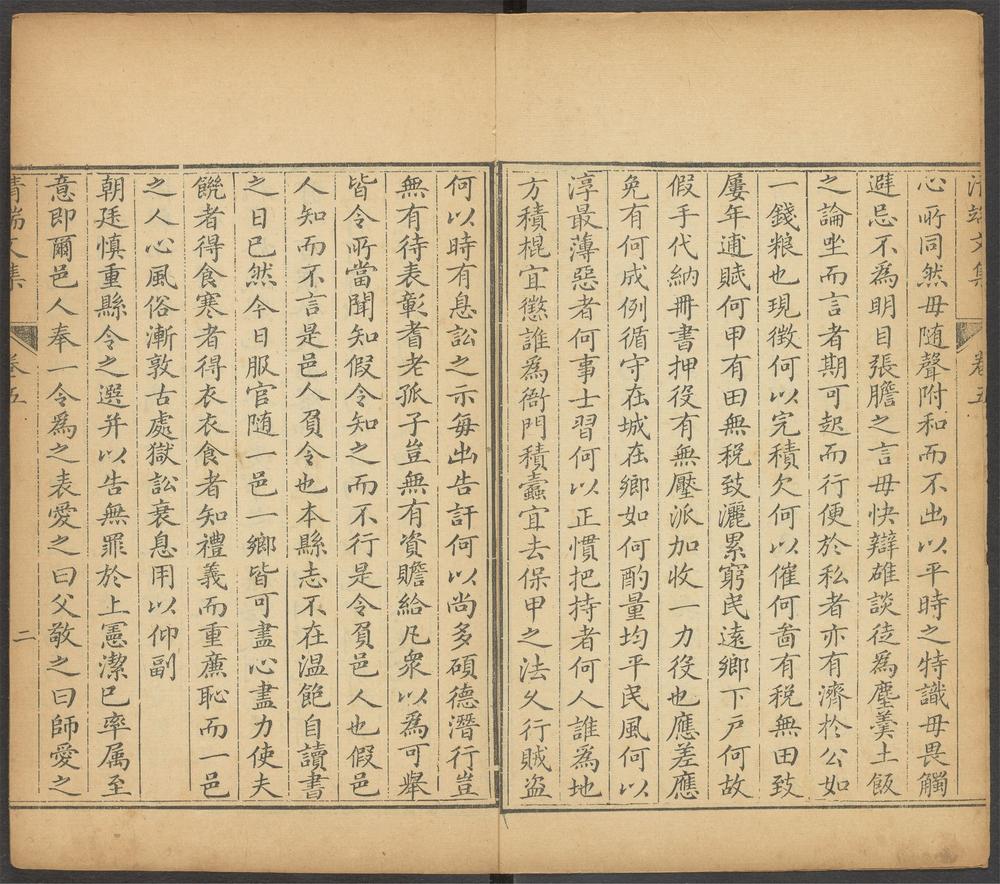 清端文集 卷五
心所同然毋随聲附和而不出以平時之特識毋畏觸
避忌不為明目張膽之言毋快辯雄談徒為塵羹土飯
之論坐而言者期可起而行便於私者亦有濟於公如
一錢粮也現徵何以完積欠何以催何啚有税無田致
屢年逋賦何甲有田無税致灑累窮民遠鄉下戸何故
假手代納冊書押役有無壓派加收一力役也應差應
免有何成例循守在城在鄉如何酌量均平民風何以
淳最薄惡者何事士習何以正慣把持者何人誰為地
方積棍宜懲誰為衙門積蠹宜去保甲之法乆行賊盜
何以時有息訟之示每出告訐何以尚多碩德潛行豈
無有待表彰耆老孤子豈無有資贍給凡衆以為可舉
皆令所當聞知假令知之而不行是令負邑人也假邑
人知而不言是邑人負令也本縣志不在温飽自讀書
之日已然今日服官随一邑一鄉皆可盡心盡力使夫
饑者得食寒者得衣衣食者知禮義而重亷恥而一邑
之人心風俗漸敦古處獄訟衰息用以仰副
朝廷慎重縣令之選并以告無罪於上憲潔已率属至
意即爾邑人奉一令為之表愛之曰父敬之曰師愛之
清端文集 卷五 二